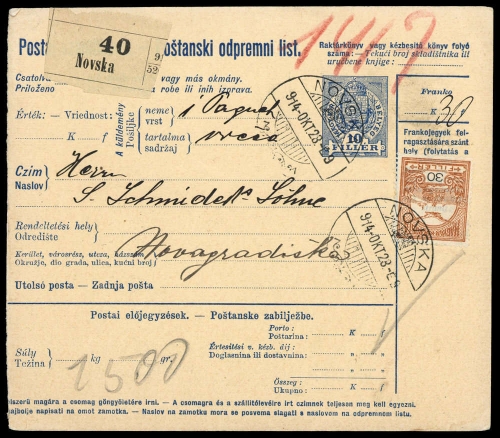 Posta oštanski odpremni list.
Raktárkönyv vagy kézbesitö könyv folyó
száma: — Tekući broj skladištnika ili
uručbene knjige:
40
Novska
Csatolva vagy más okmány.
Priloženo robe ili inh izprava.
Érték: — Vriednost:
K f
A küldemény
Pošiljke
neme
vrst
1 Paquet
tartalma
sadržaj
10
FILLÉR
Franko
K 30 f
Frankojegyek fel-
ragasztására szánt
hely (folytatás a
30
FILLÉR
NOVSKA
914 OKT 23
NOVSKA
914 OKT 23
Czim
Naslov
Herrn
S. Schmidek's Söhne
Rendeltetési hely
Odredište
Novagradiska
Kerület, városrész, utcza, házszám
Okružje, dio grada, ulica, kućni broj
Utolsó posta — Zadnja pošta
Postai előjegyzések. — Poštanske zabilježbe.
Porto:
Poštarina: K f
Súly
Težina
kg gr.
1500
Értesitési v. kézb. dij:
Doglasnina ili dostavnina
Összeg:
Ukupno: K f
szerü magára a csomag göngyöletére irni. — A csomagra és a szállitólevélre irt czimnek teljesen meg kell egyezni.
ajbolje napisati na omot zamotka. — Naslov na zamotku mora se posvema slagati s naslovom na odpremnom listu.